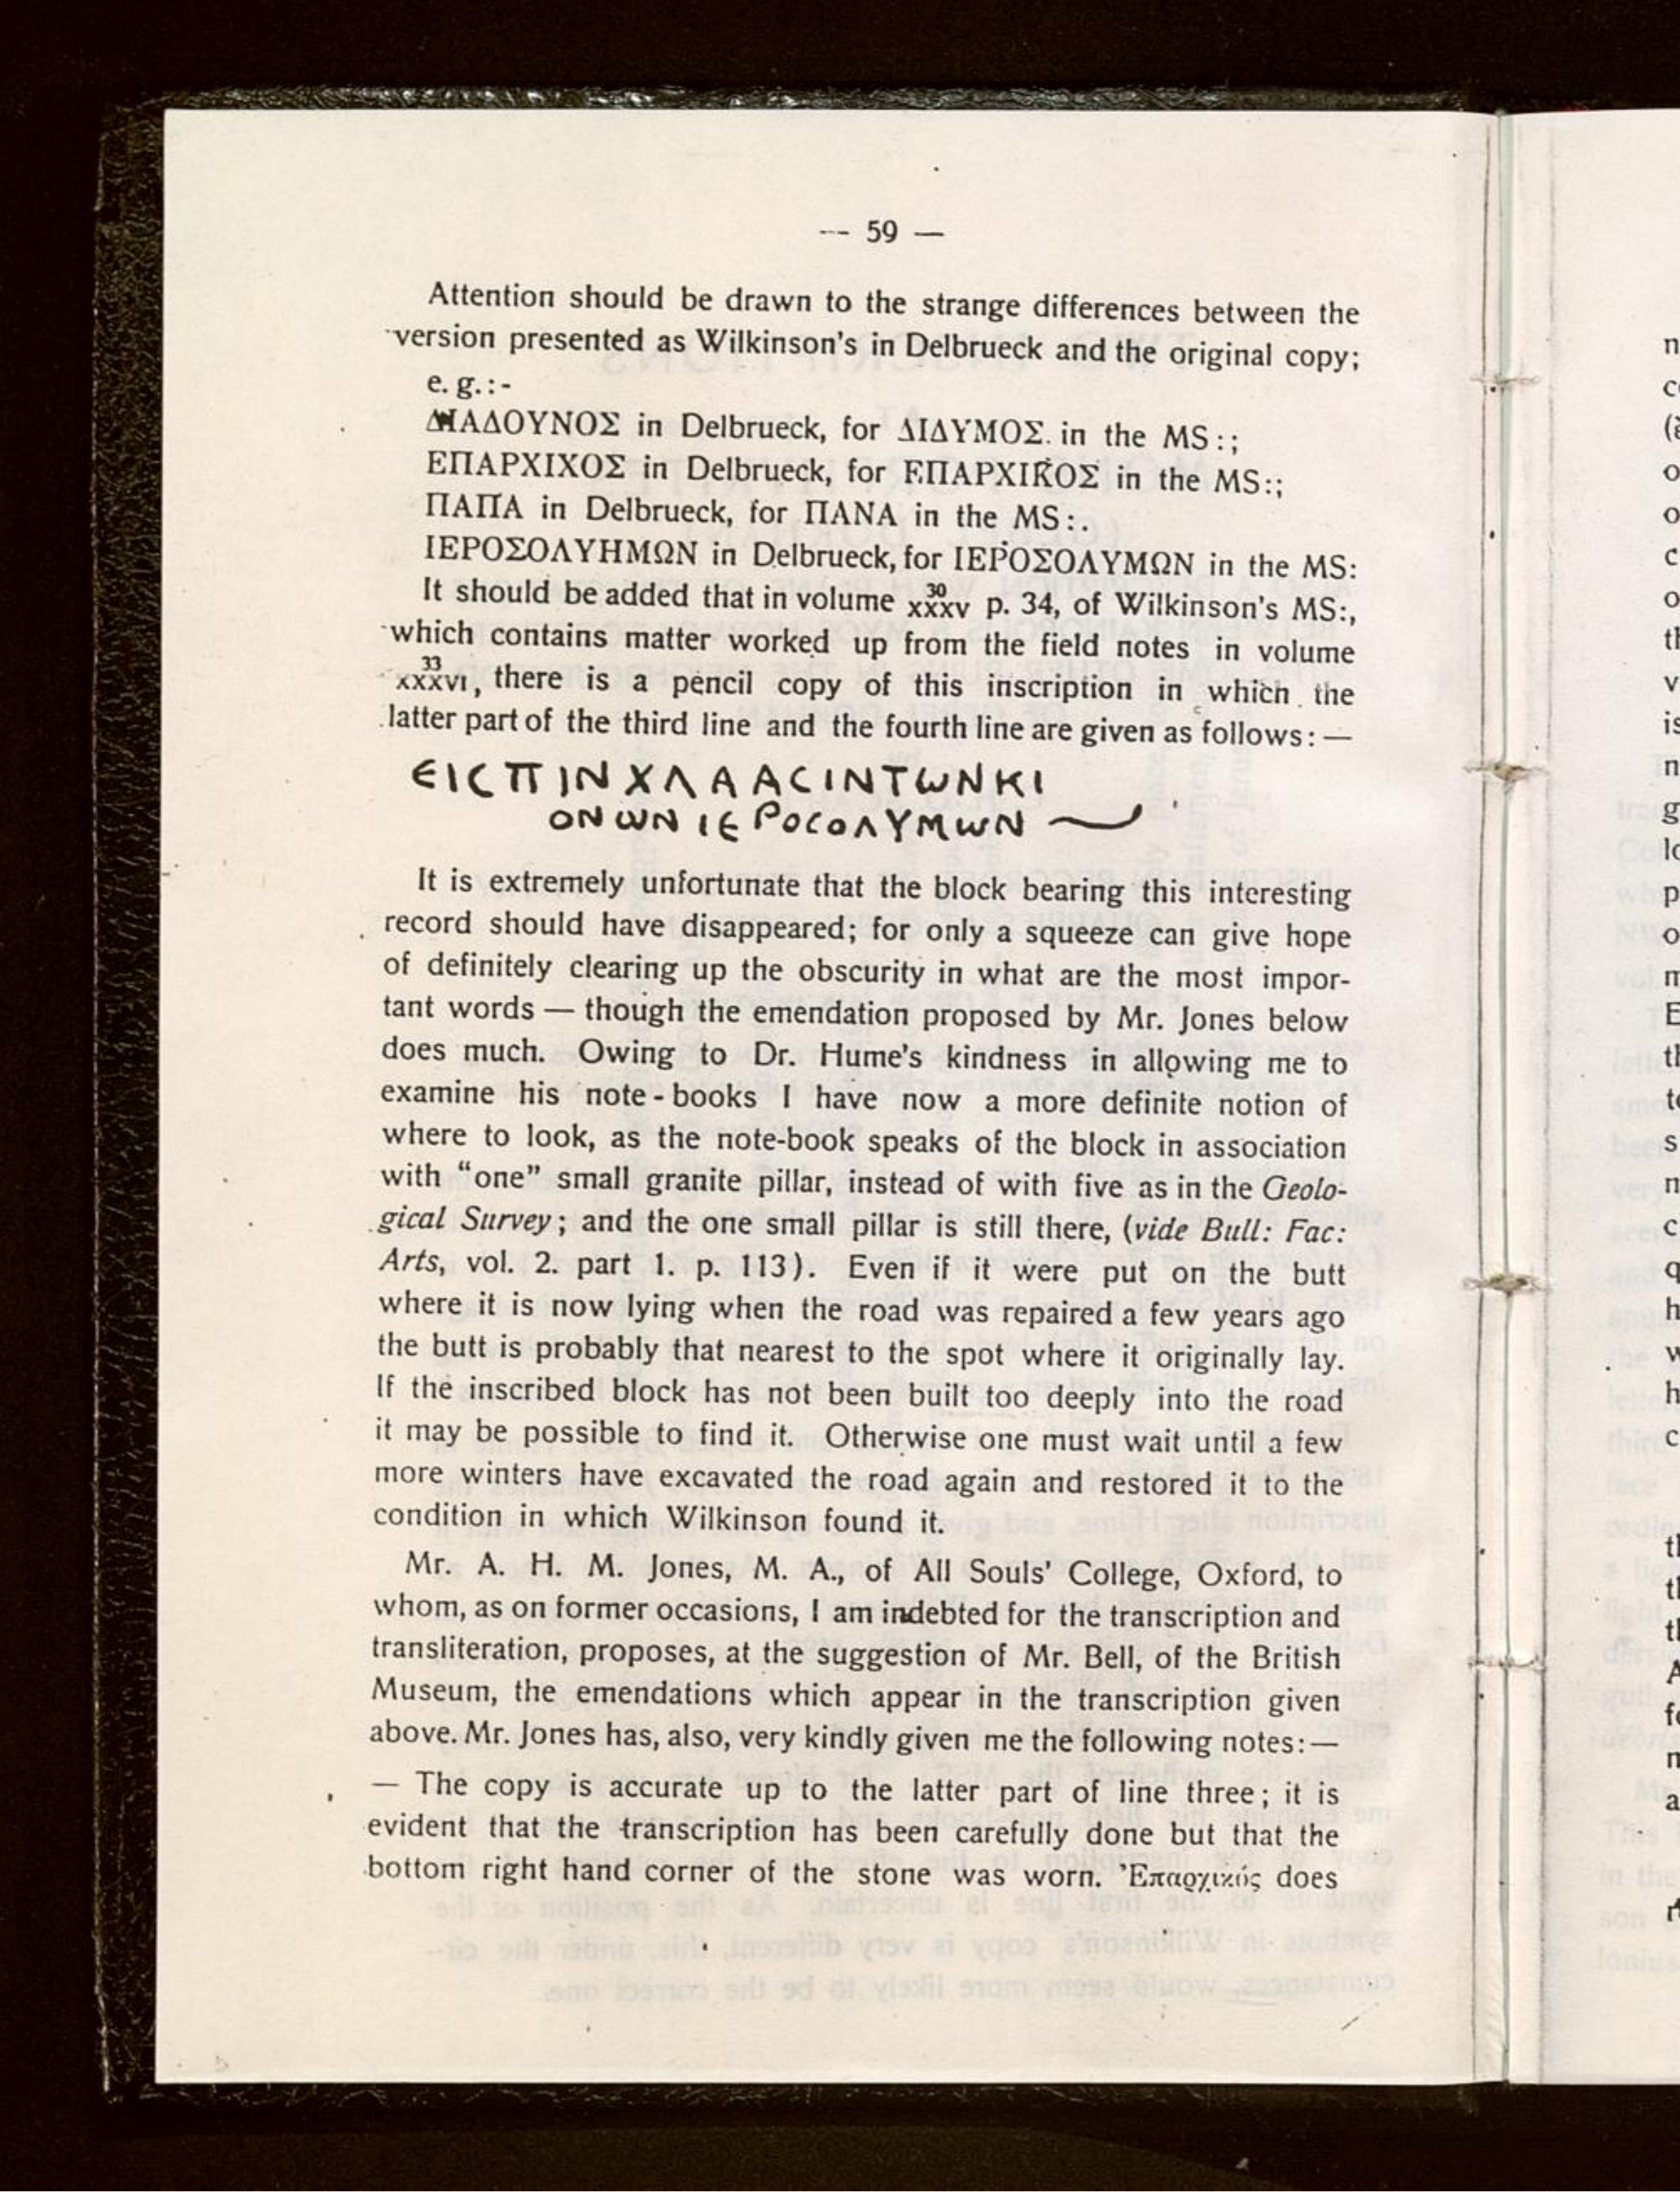 --- 59 —
Attention should be drawn to the strange differences between the
version presented as Wilkinson's in Delbrueck and the original copy;
e. g. : -
ΔΙΑΔΟΥΝΟΣ in Delbrueck, for ΔΙΔΥΜΟΣ. in the MS : ;
ΕΠΑΡΧΙΧΟΣ in Delbrueck, for ΕΠΑΡΧΙΚΟΣ in the MS:;
ΠΑΠΑ in Delbrueck, for ΠΑΝΑ in the MS:.
ΙΕΡΟΣΟΛΥΗΜΩΝ in Delbrueck, for ΙΕΡΟΣΟΛΥΜΩΝ in the MS:
It should be added that in volume xxxv 30 p. 34, of Wilkinson's MS:,
which contains matter worked up from the field notes in volume
xxxvi 33, there is a pencil copy of this inscription in which the
latter part of the third line and the fourth line are given as follows: —
ЄΙϹΠΙΝΧΛΑΑϹΙΝΤωΝΚΙ
ΟΝωΝΙЄΡΟϹΟΛΥΜωΝ
It is extremely unfortunate that the block bearing this interesting
record should have disappeared; for only a squeeze can give hope
of definitely clearing up the obscurity in what are the most impor-
tant words — though the emendation proposed by Mr. Jones below
does much. Owing to Dr. Hume's kindness in allowing me to
examine his note - books I have now a more definite notion of
where to look, as the note-book speaks of the block in association
with “one” small granite pillar, instead of with five as in the Geolo-
gical Survey; and the one small pillar is still there, (vide Bull: Fac:
Arts, vol. 2. part 1. p. 113). Even if it were put on the butt
where it is now lying when the road was repaired a few years ago
the butt is probably that nearest to the spot where it originally lay.
If the inscribed block has not been built too deeply into the road
it may be possible to find it. Otherwise one must wait until a few
more winters have excavated the road again and restored it to the
condition in which Wilkinson found it.
Mr. A. H. M. Jones, M. A., of All Souls' College, Oxford, to
whom, as on former occasions, I am indebted for the transcription and
transliteration, proposes, at the suggestion of Mr. Bell, of the British
Museum, the emendations which appear in the transcription given
above. Mr. Jones has, also, very kindly given me the following notes: —
— The copy is accurate up to the latter part of line three; it is
evident that the transcription has been carefully done but that the
bottom right hand corner of the stone was worn. Ἐπαρχικός does